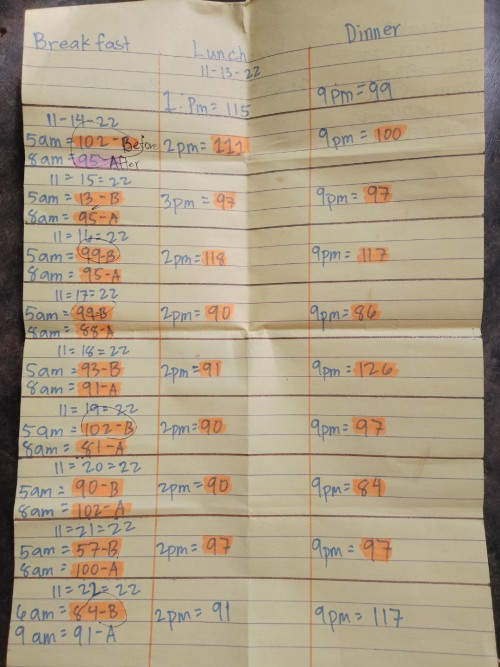 Breakfast Lunch Dinner
11-13-22
1:Pm = 115 9pm = 99
11-14-22
5am = 102-B Before 2pm = 111 9pm = 100
8am = 95-After
11=15=22
5am = 13-B 3pm = 97 9pm = 97
8am = 95-A
11=16=22
5am = 99-B 2pm = 118 9pm = 117
8am = 95-A
11=17=22
5am = 99-B 2pm = 90 9pm = 86
8am = 88-A
11=18=22
5am = 93-B 2pm = 91 9pm = 126
8am = 91-A
11=19=22
5am = 102-B 2pm = 90 9pm = 97
8am = 81-A
11=20=22
5am = 90-B 2pm = 90 9pm = 84
8am = 102-A
11=21=22
5am = 57-B 2pm = 97 9pm = 97
8am = 100-A
11=22=22
6am = 84-B 2pm = 91 9pm = 117
9am = 91-A